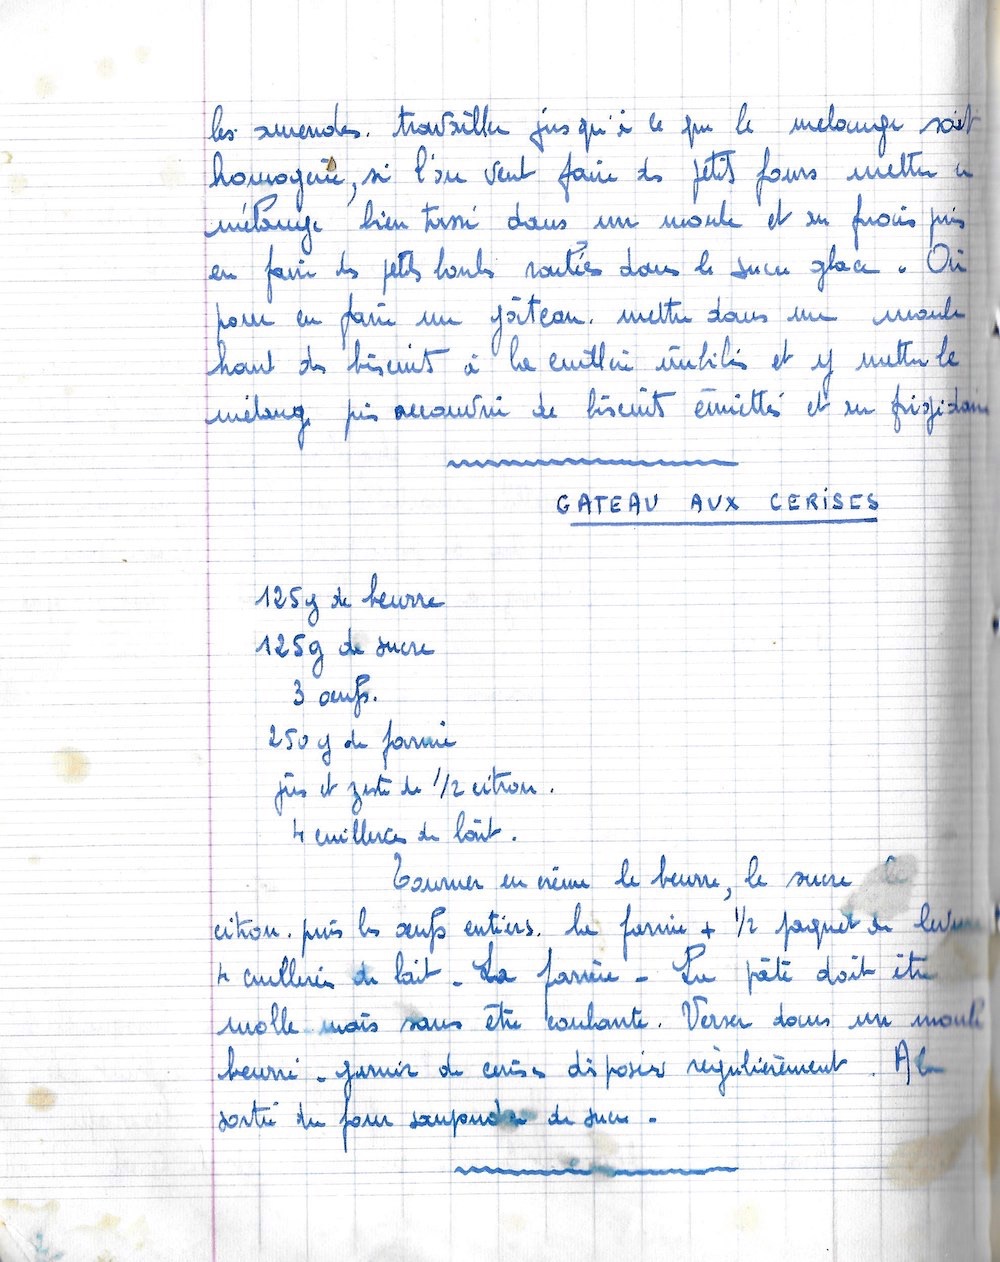 les amendes. travailler jusqu'à ce que le melange soit
homogène, si l'on veut faire des petits fours mettre ce
mélange bien tassé dans un moule et au frais puis
en faire des petites boules roulées dans le sucre glace. Ou
pour en faire un gâteau. mettre dans un moule
haut des biscuits à la cuillère imbibés et y mettre le
mélange puis recouvrir de biscuits émiettés et au frigidaire
GATEAU AUX CERISES
125g de beurre
125g de sucre
3 œufs.
250 g de farine
jus et zeste de 1/2 citron.
4 cuillerées de lait.
Tourner en crème le beurre, le sucre le
citron. puis les œufs entiers. la farine + 1/2 paquet de levure
4 cuillerées de lait - La farine - La pâte doit être
molle mais sans être coulante. Verser dans un moule
beurré - garnir de cerises disposées régulièrement. A la
sortie du four saupoudrer de sucre -